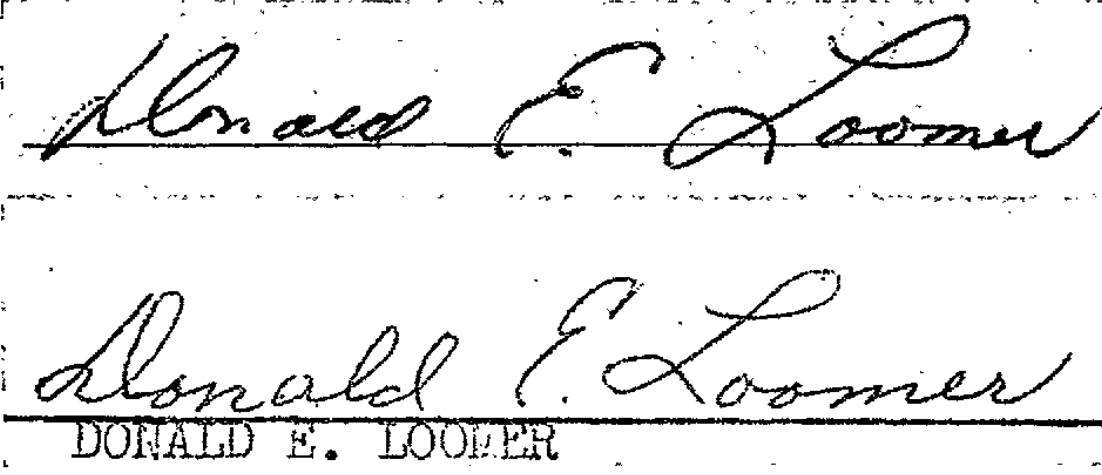 Donald E. Loomer
Donald E. Loomer
DONALD E. LOOMER